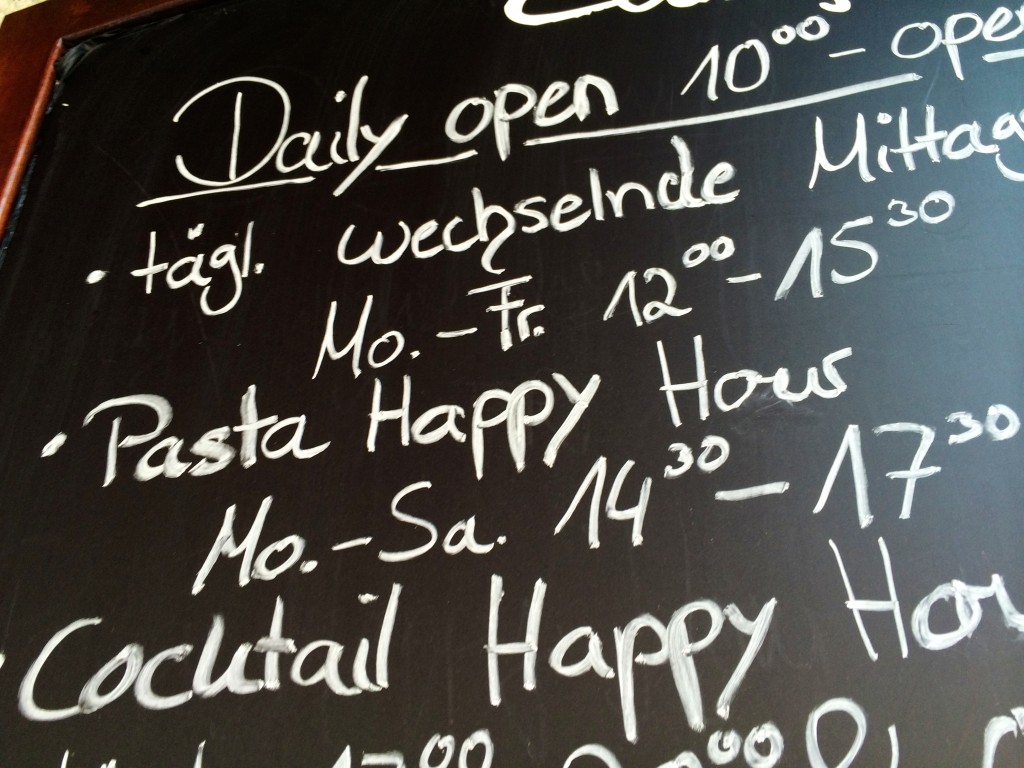 Daily open 10⁰⁰ - open
• tägl. wechselnde Mittag
Mo. - Fr. 12⁰⁰ - 15³⁰
• Pasta Happy Hour
Mo. - Sa. 14³⁰ - 17³⁰
• Cocktail Happy Hou
17⁰⁰